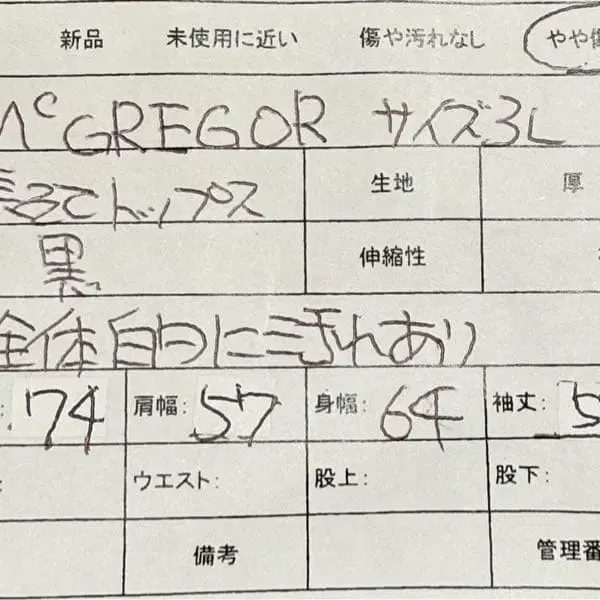 新品 未使用に近い 傷や汚れなし やや傷
McGREGOR サイズ3L
長そでトップス 生地 厚
黒 伸縮性
全体的に汚れあり
: 74 肩幅: 57 身幅: 64 袖丈: 5
: ウエスト: 股上: 股下:
備考 管理番